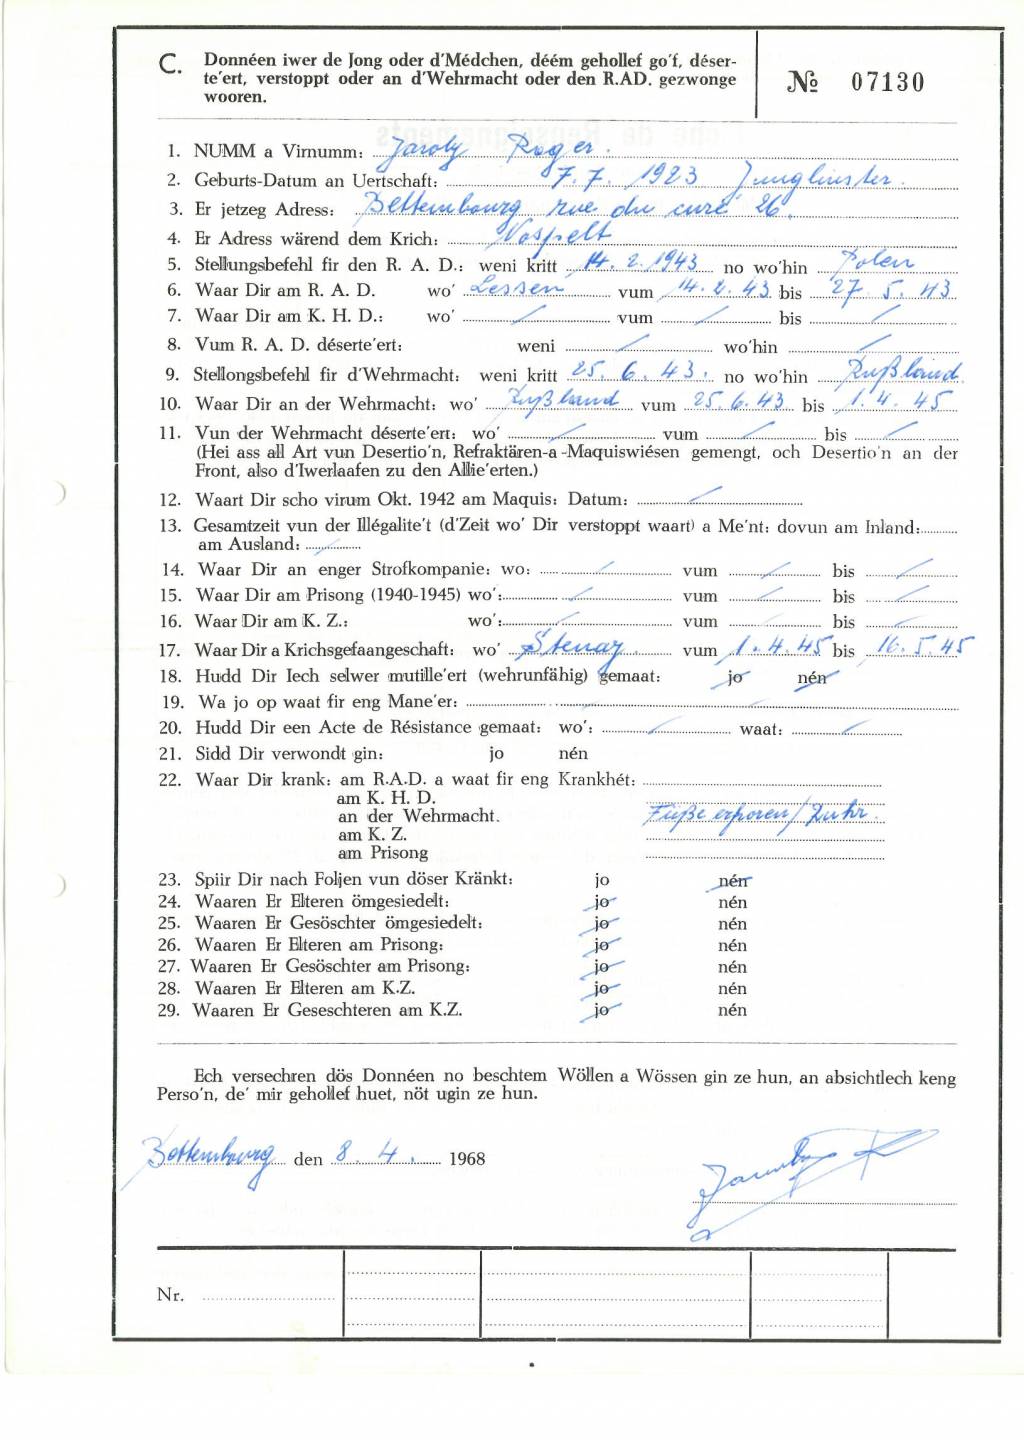 C. Donnéen iwer de Jong oder d'Médchen, déém gehollef go'f, déser-
te'ert, verstoppt oder an d'Wehrmacht oder den R.AD. gezwonge
wooren.
№ 07130
1. NUMM a Virnumm: Jaroly Roger.
2. Geburts-Datum an Uertschaft: 7.7. 1923 Junglinster.
3. Er jetzeg Adress: Bettembourg rue du curé 26.
4. Er Adress wärend dem Krich: Nospelt
5. Stellungsbefehl fir den R. A. D.: weni kritt 14.2.1943 no wo'hin Polen
6. Waar Dir am R. A. D. wo' Lessen vum 14.2.43 bis 27.5.43
7. Waar Dir am K. H. D.: wo' / vum / bis /
8. Vum R. A. D. déserte'ert: weni / wo'hin /
9. Stellongsbefehl fir d'Wehrmacht: weni kritt 25.6.43. no wo'hin Rußland
10. Waar Dir an der Wehrmacht: wo' Rußland vum 25.6.43 bis 1.4.45
11. Vun der Wehrmacht déserte'ert: wo' / vum / bis /
(Hei ass all Art vun Desertio'n, Refraktären-a-Maquiswiésen gemengt, och Desertio'n an der
Front, also d'Iwerlaafen zu den Allie'erten.)
12. Waart Dir scho virum Okt. 1942 am Maquis: Datum: /
13. Gesamtzeit vun der Illégalite't (d'Zeit wo' Dir verstoppt waart) a Me'nt: dovun am Inland:
am Ausland: /
14. Waar Dir an enger Strofkompanie: wo: / vum / bis /
15. Waar Dir am Prisong (1940-1945) wo': / vum / bis /
16. Waar Dir am K. Z.: wo': / vum / bis /
17. Waar Dir a Krichsgefaangeschaft: wo' Stenay vum 1.4.45 bis 16.5.45
18. Hudd Dir Iech selwer mutille'ert (wehrunfähig) gemaat: jo nén
19. Wa jo op waat fir eng Mane'er: /
20. Hudd Dir een Acte de Résistance gemaat: wo': / waat: /
21. Sidd Dir verwondt gin: jo nén
22. Waar Dir krank: am R.A.D. a waat fir eng Krankhét:
am K. H. D.
an der Wehrmacht. Füße erfroren / Ruhr.
am K. Z.
am Prisong
23. Spiir Dir nach Foljen vun döser Kränkt: jo nén
24. Waaren Er Elteren ömgesiedelt: jo nén
25. Waaren Er Gesöschter ömgesiedelt: jo nén
26. Waaren Er Elteren am Prisong: jo nén
27. Waaren Er Gesöschter am Prisong: jo nén
28. Waaren Er Elteren am K.Z. jo nén
29. Waaren Er Geseschteren am K.Z. jo nén
Ech versechren dös Donnéen no beschtem Wöllen a Wössen gin ze hun, an absichtlech keng
Perso'n, de' mir gehollef huet, nöt ugin ze hun.
Bettembourg den 8. 4. 1968
Nr.